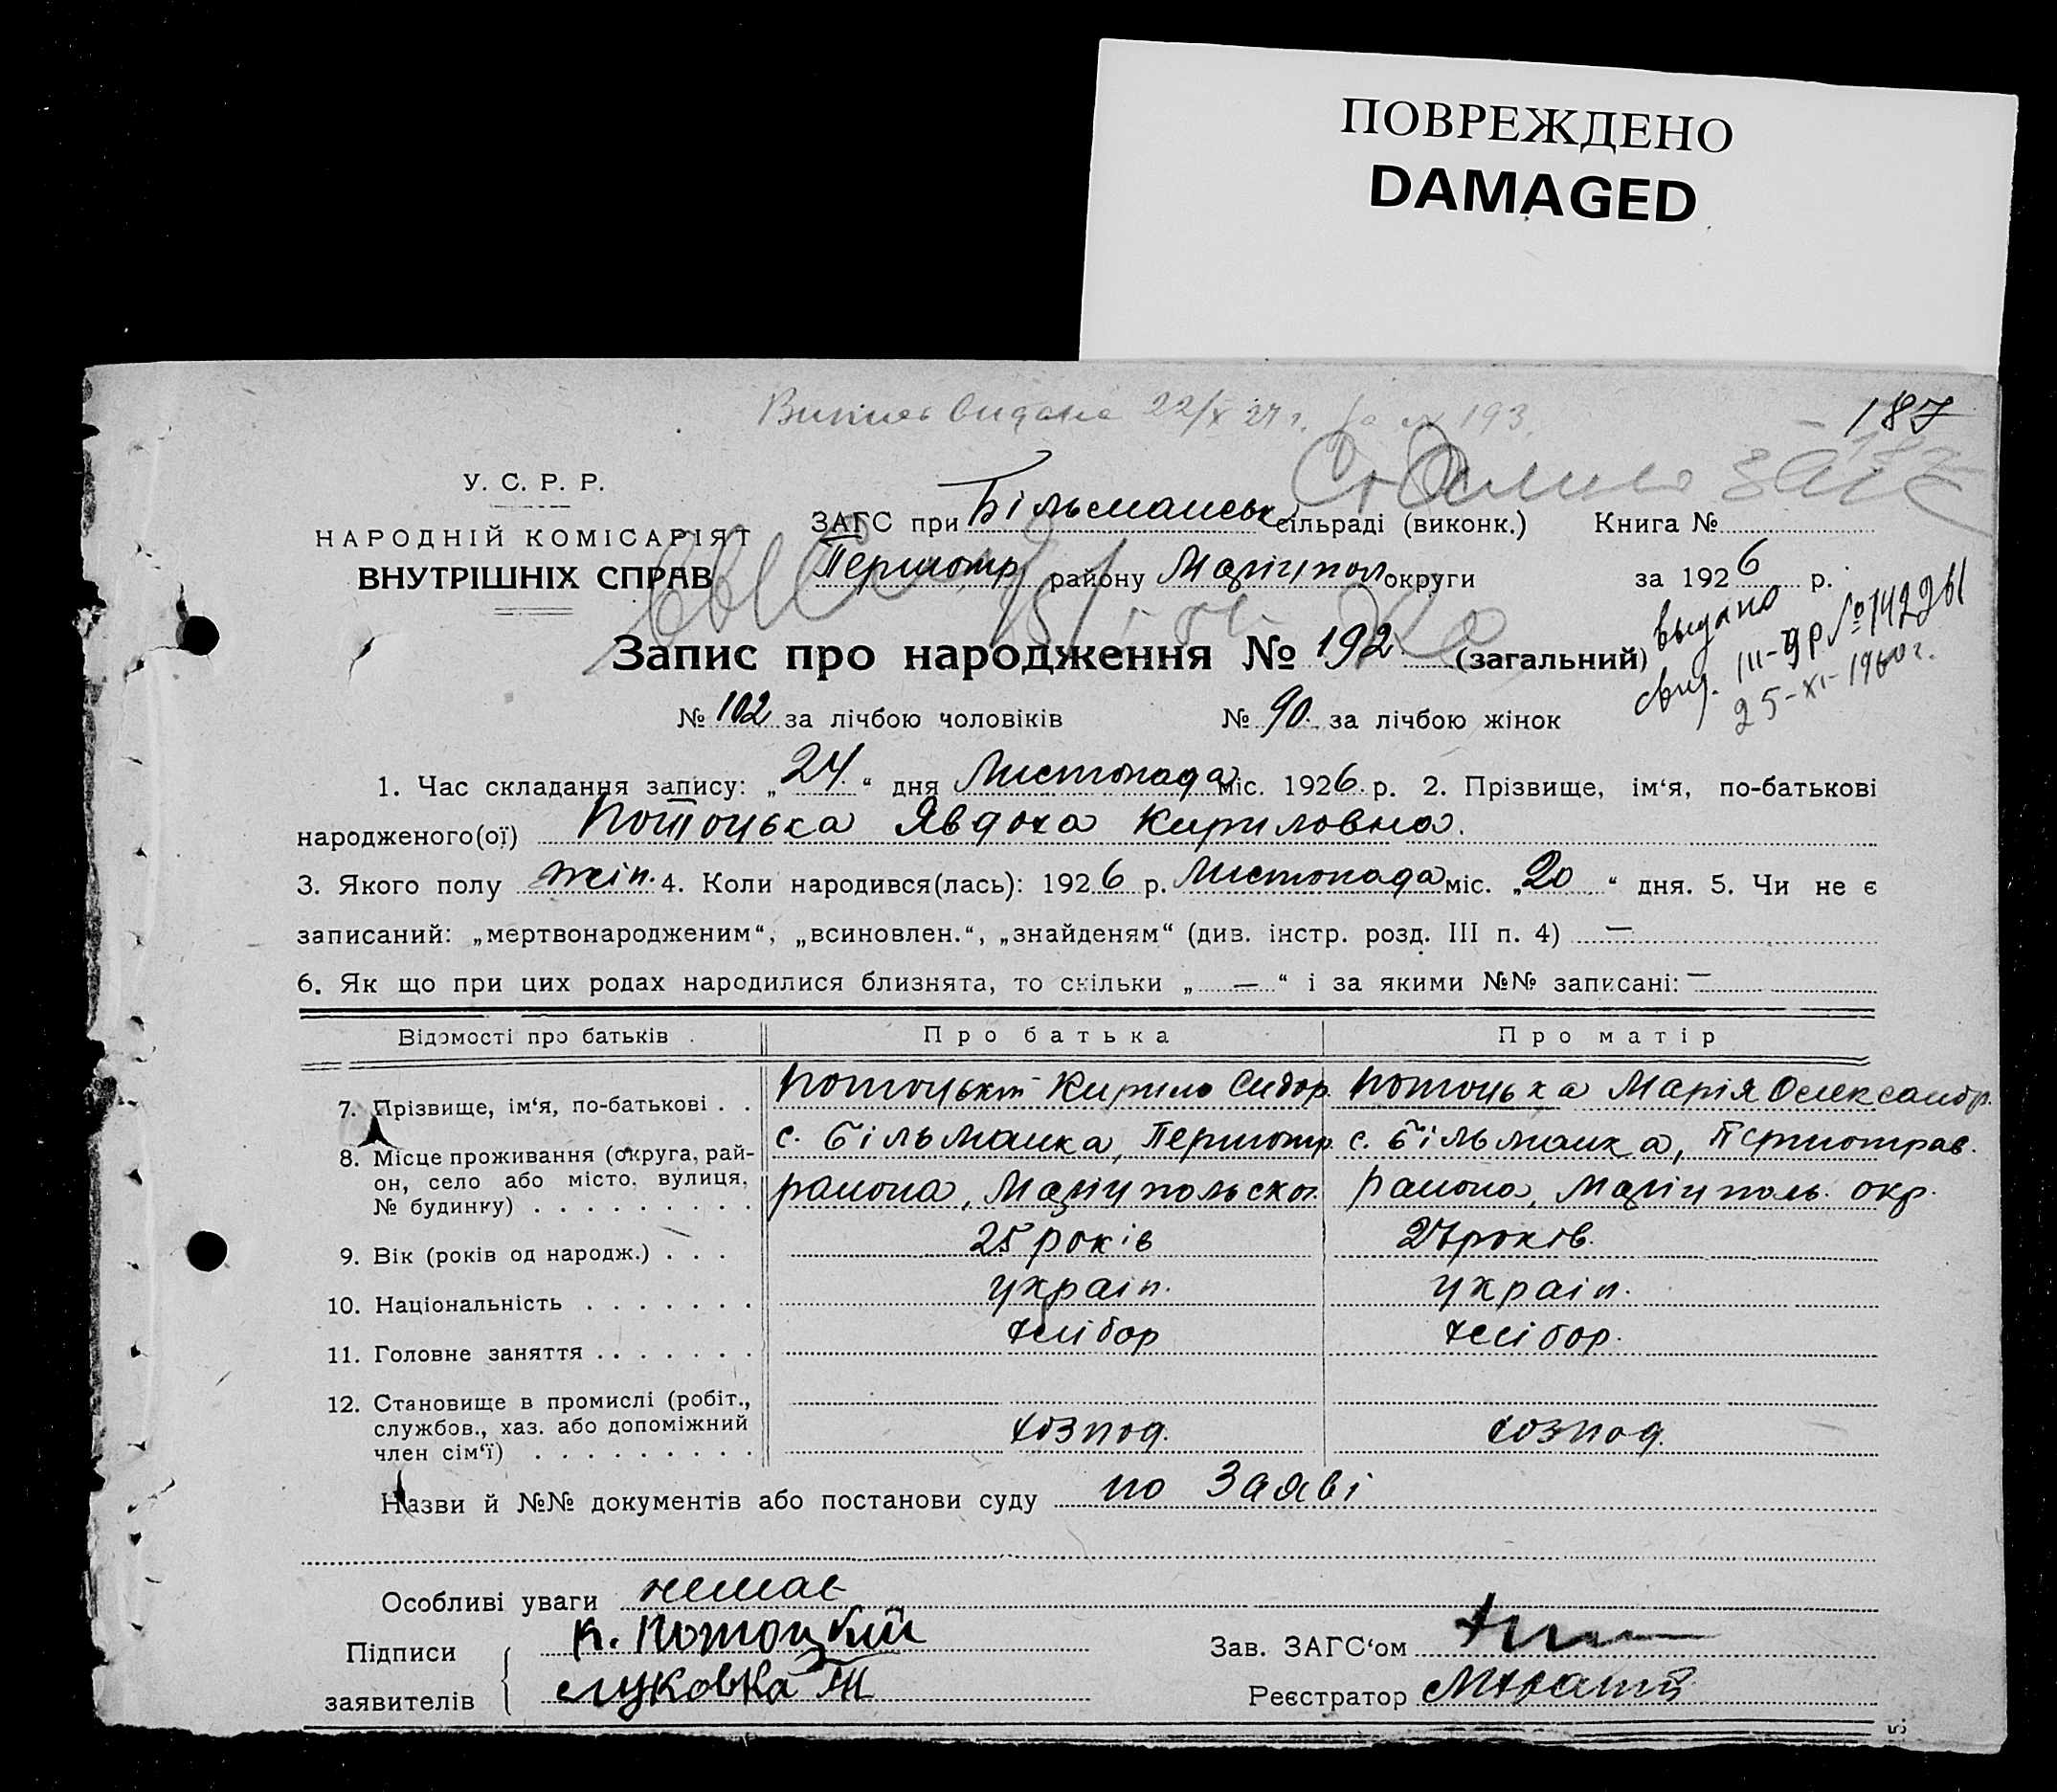 ПОВРЕЖДЕНО
DAMAGED
187
видана 22/X 27 г. за № 193.
У. С. Р. Р.
НАРОДНІЙ КОМІСАРІЯТ
ВНУТРІШНІХ СПРАВ
ЗАГС при Більманськ сільраді (виконк.) Книга №
Першотр. району Маріупол округи за 1926 р.
выдано
свид. III-ЯР № 142261
25-XI-1960 г.
Запис про народження № 192 (загальний)
№ 102 за лічбою чоловіків № 90. за лічбою жінок
1. Час складання запису: „24“ дня Листопада міс. 1926 р. 2. Прізвище, ім‘я, по-батькові
народженого(ої) Потоцька Явдоха Кириловна.
3. Якого полу жін. 4. Коли народився(лась): 1926 р. Листопада міс. „20“ дня. 5. Чи не є
записаний: „мертвонародженим“, „всиновлен.“, „знайденям“ (див. інстр. розд. III п. 4) —
6. Як що при цих родах народилися близнята, то скільки „ — “ і за якими №№ записані: —
Відомості про батьків Про батька Про матір
7. Прізвище, ім‘я, по-батькові . . Потоцький Кирило Сидор. Потоцька Марія Олександр.
8. Місце проживання (округа, рай-он, село або місто, вулиця, № будинку) . . . . . . . . . с. Більманка, Першотр. района, Маріупольськ. с. Більманка, Першотрав. района, Маріуполь. окр.
9. Вік (років од народж.) . . . 25 років 27 років.
10. Національність . . . . . . . україн. україн.
11. Головне заняття . . . . . . . хлібор хлібор.
12. Становище в промислі (робіт., службов., хаз. або допоміжний член сім‘ї) . . . . . . . . . хозпод. хозпод.
Назви й №№ документів або постанови суду по Заяві
Особливі уваги немає
Підписи К. Потоцький Зав. ЗАГС‘ом
заявителів Реєстратор
5.